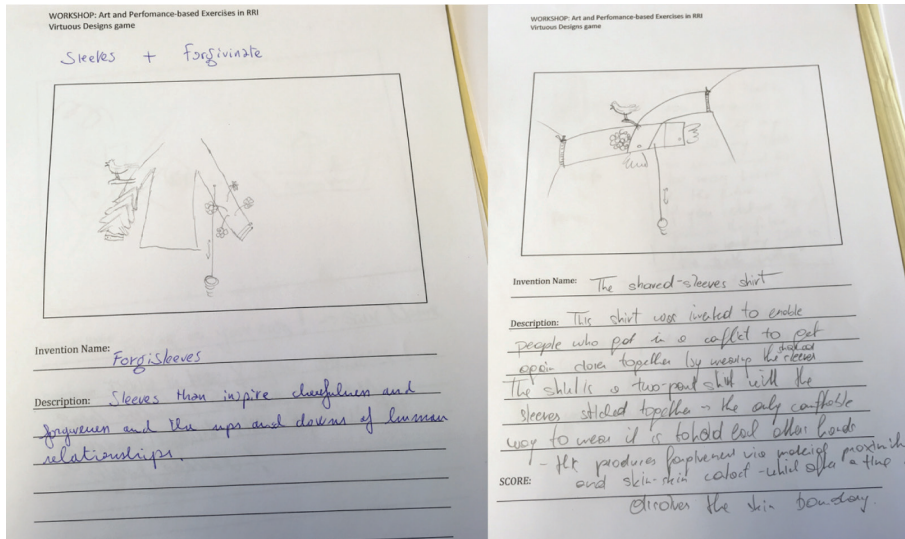 WORKSHOP: Art and Perfomance-based Exercises in RRI
Virtuous Designs game
Sleeves + forgivinate
Invention Name: Forgisleeves
Description: Sleeves than inspire cheefulness and
forgiveness and the ups and downs of human
relationships.
WORKSHOP: Art and Perfomance-based Exercises in RRI
Virtuous Designs game
Invention Name: The shared-sleeves shirt
Description: This shirt was invented to enable
people who got in a conflict to get
again closer together by wearing the shared sleeves
The shirt is a two-part shirt with the
sleeves stitched together - the only comfortable
way to wear it is to hold each other hands
- produces via making proximity
SCORE: and skin-skin contact - which after a time
dissolves the skin boundary.